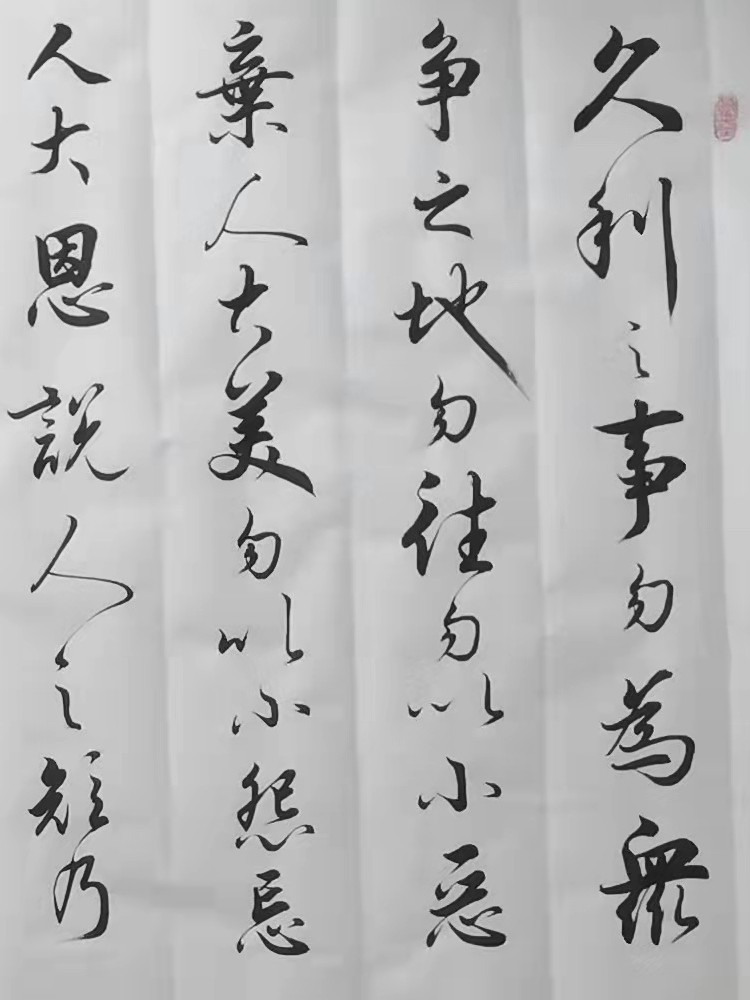 久利之事勿為衆
争之地勿往勿以小惡
棄人大美勿以小怨忘
人大恩説人之短乃